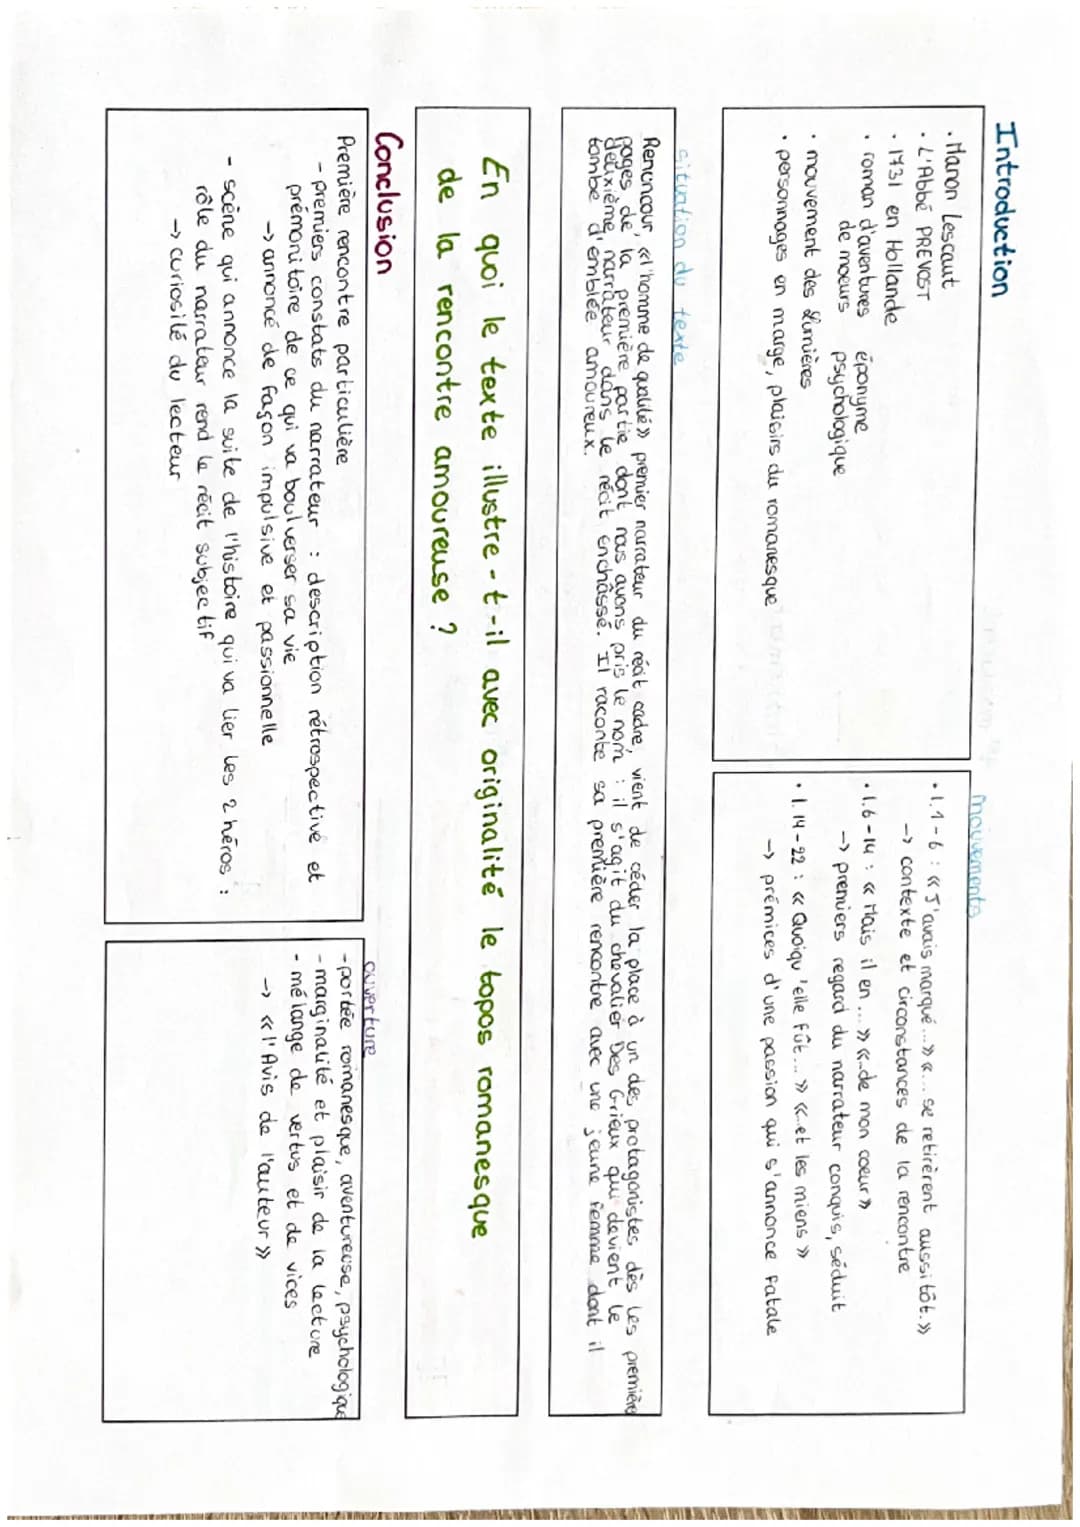 Introduction
• Manon Lescaut
• L'Abbé PREVOST
• 1731 en Hollande
• roman d'aventures éponyme
de moeurs psychologique
• mouvement des Lumières
• personnages en marge, plaisirs du romanesque
mouvements
• l. 1 - 6 : « J'avais marqué ... » « ... se retirèrent aussitôt. »
→ contexte et circonstances de la rencontre
• l. 6 - 14 : « Mais il en ... » « ...de mon coeur »
→ premiers regard du narrateur conquis, séduit
• l. 14 - 22 : « Quoiqu'elle fût... » « ...et les miens »
→ prémices d'une passion qui s'annonce fatale
situation du texte
Renoncour, « l'homme de qualité » premier narrateur du récit cadre, vient de céder la place à un des protagonistes dès les première
pages de la première partie dont nous avons pris le nom : il s'agit du chevalier Des Grieux qui devient le
deuxième narrateur dans le récit enchâssé. Il raconte sa première rencontre avec une jeune femme dont il
tombe d'emblée amoureux.
En quoi le texte illustre-t-il avec originalité le topos romanesque
de la rencontre amoureuse ?
Conclusion
Première rencontre particulière
- premiers constats du narrateur : description rétrospective et
prémonitoire de ce qui va boulverser sa vie
→ annoncé de façon impulsive et passionnelle
- scène qui annonce la suite de l'histoire qui va lier les 2 héros :
rôle du narrateur rend le récit subjectif
→ curiosité du lecteur
ouverture
- portée romanesque, aventureuse, psychologique
- marginalité et plaisir de la lecture
- mélange de vertus et de vices
→ « l'Avis de l'auteur »